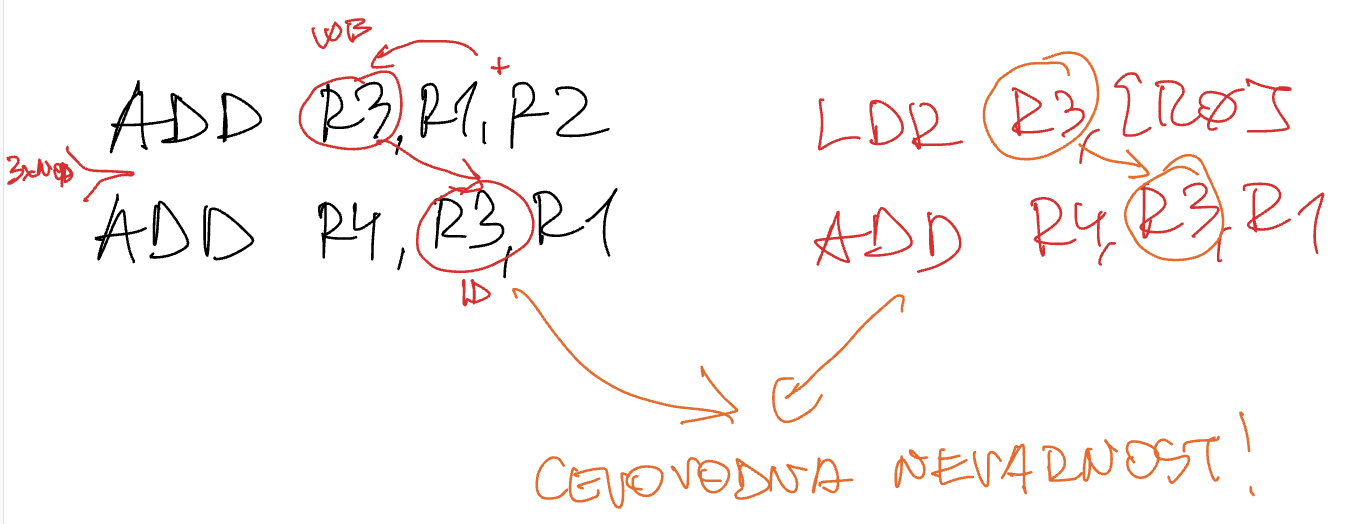 WB
+
ADD R3, R1, R2
3xNOP
ADD R4, R3, R1
ID
LDR R3, [R0]
ADD R4, R3, R1
CEVOVODNA NEVARNOST!